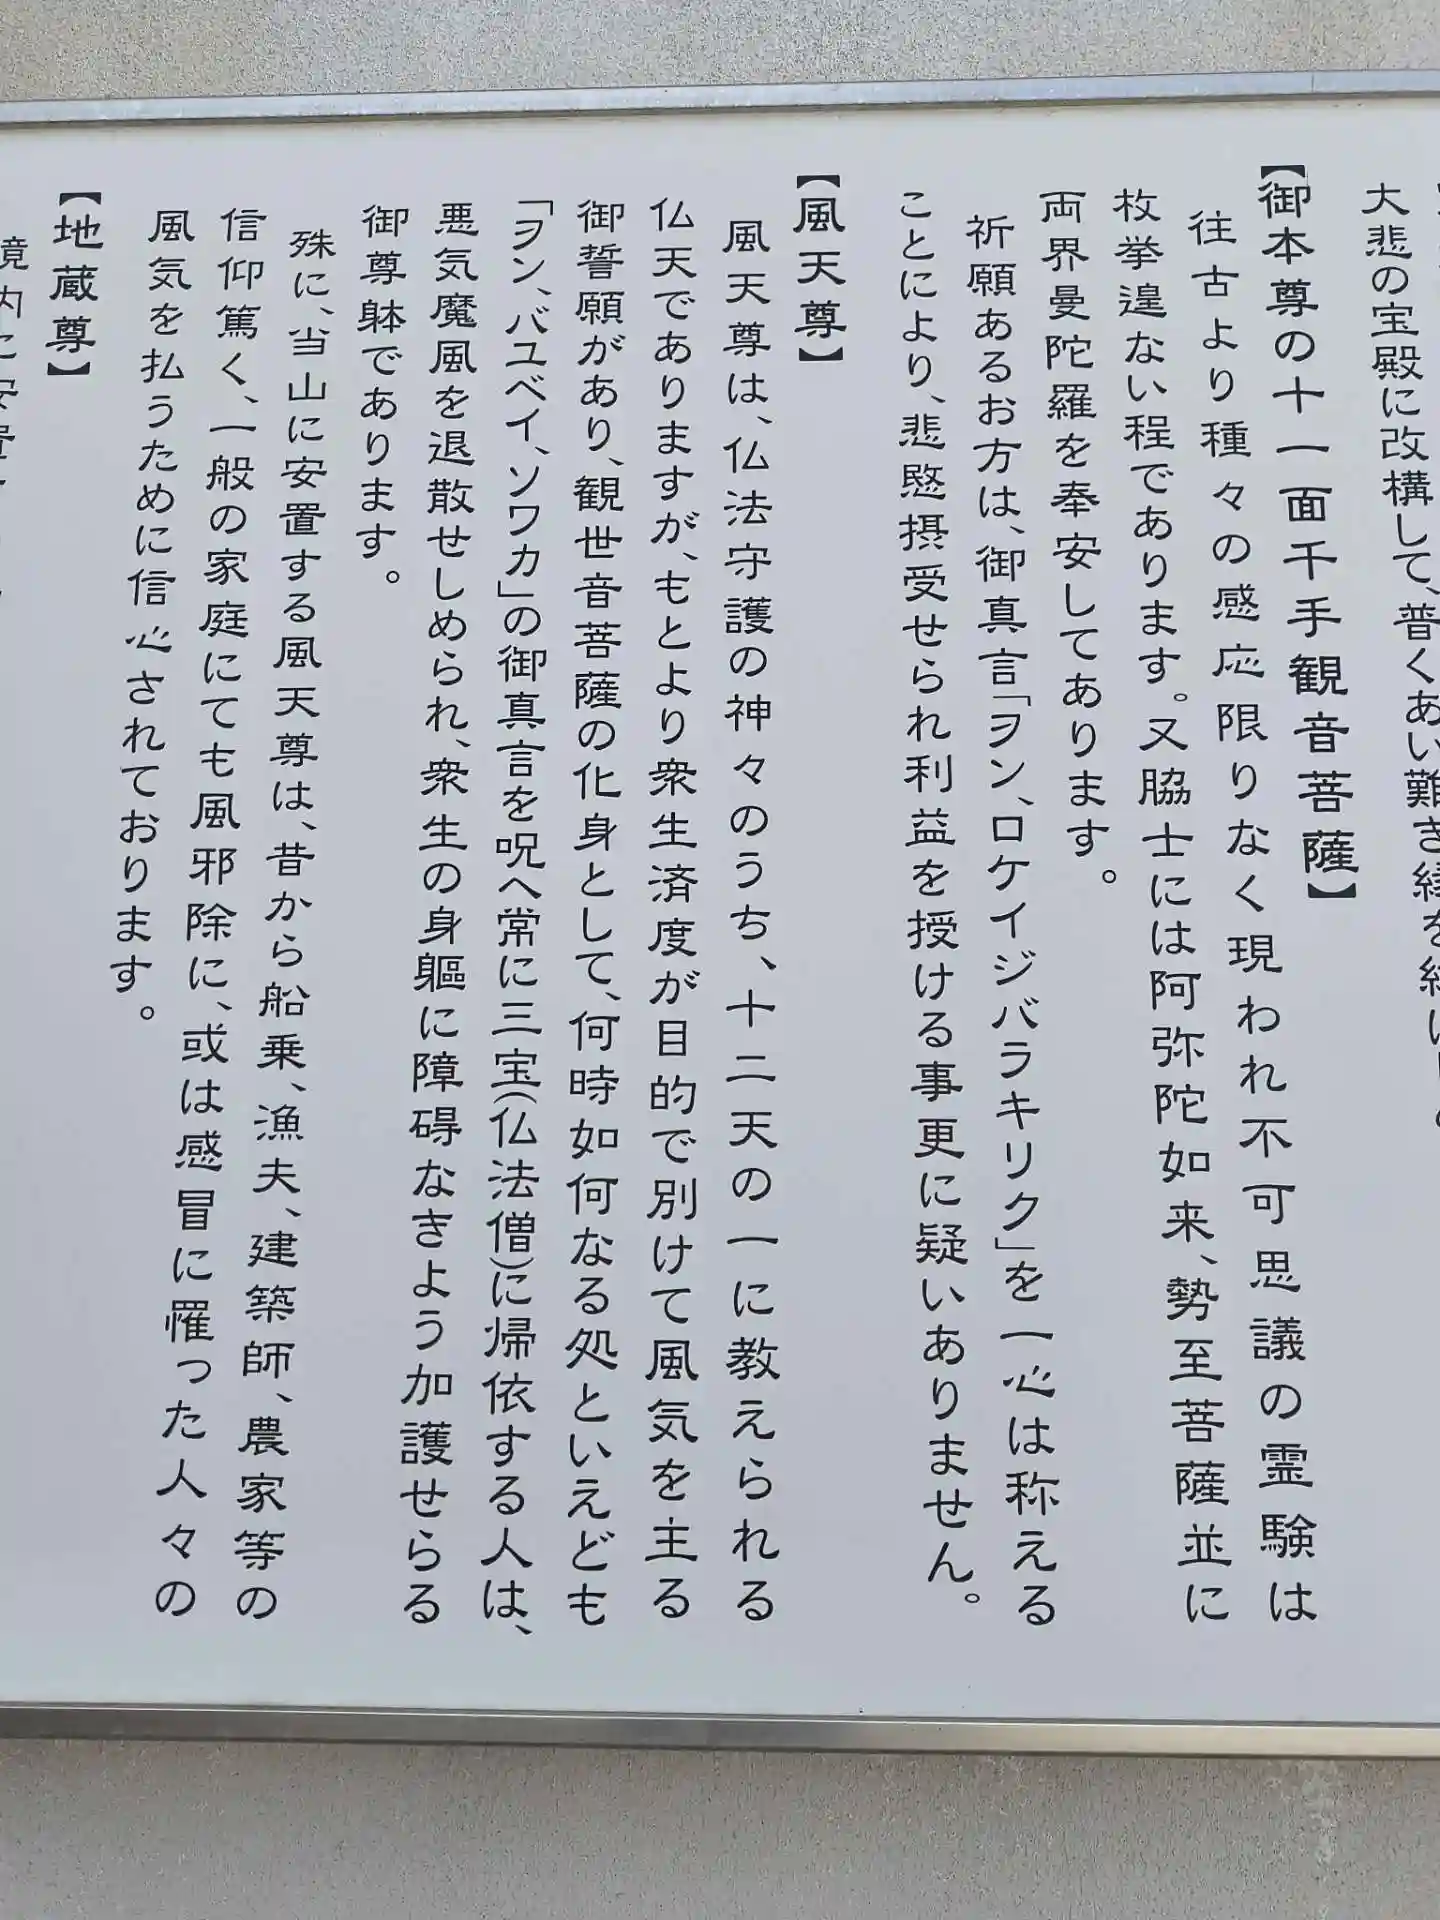 大悲の宝殿に改構して、普くあい難き縁を
【御本尊の十一面千手観音菩薩】
往古より種々の感応限りなく現われ不可思議の霊験は
枚挙遑ない程であります。又脇士には阿弥陀如来、勢至菩薩並に
両界曼陀羅を奉安してあります。
祈願あるお方は、御真言「ヲン、ロケイジバラキリク」を一心は称える
ことにより、悲愍摂受せられ利益を授ける事更に疑いありません。
【風天尊】
風天尊は、仏法守護の神々のうち、十二天の一に教えられる
仏天でありますが、もとより衆生済度が目的で別けて風気を主る
御誓願があり、観世音菩薩の化身として、何時如何なる処といえども
「ヲン、バユベイ、ソワカ」の御真言を呪へ常に三宝(仏法僧)に帰依する人は、
悪気魔風を退散せしめられ、衆生の身軀に障碍なきよう加護せらる
御尊躰であります。
殊に、当山に安置する風天尊は、昔から船乗、漁夫、建築師、農家等の
信仰篤く、一般の家庭にても風邪除に、或は感冒に罹った人々の
風気を払うために信心されております。
【地蔵尊】
境内に安置